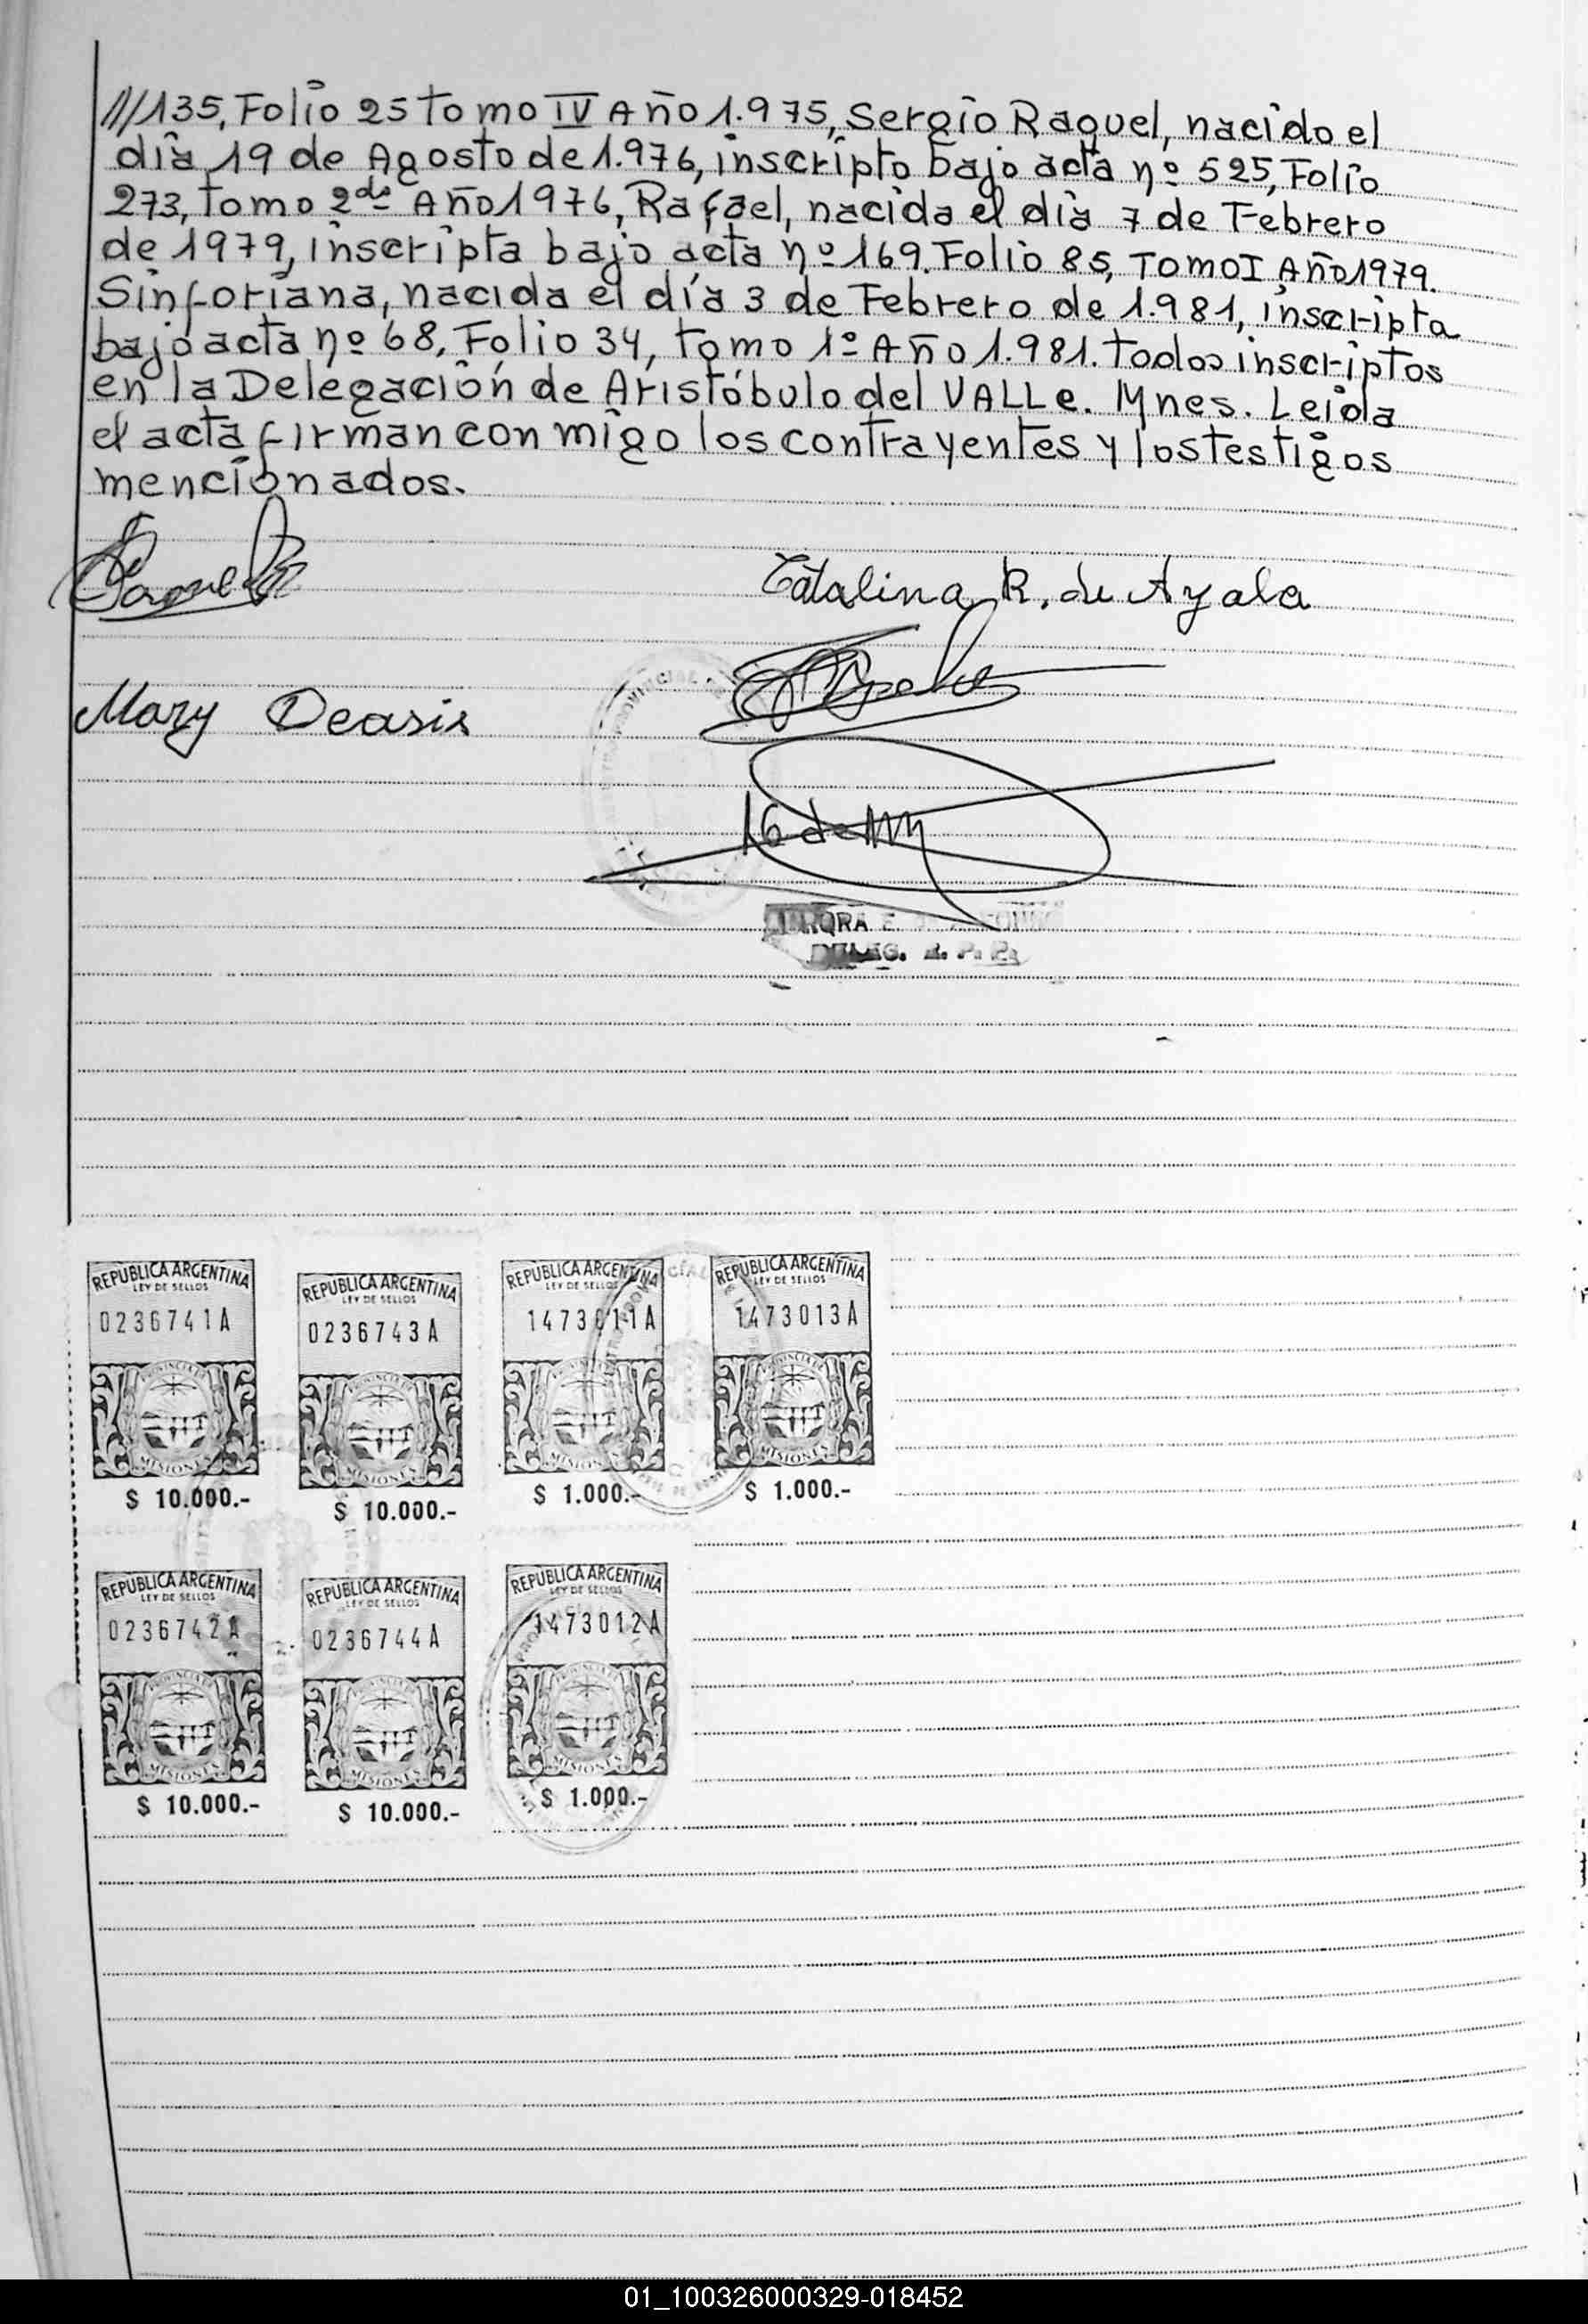 ///135, Folio 25 tomo IV Año 1.975, Sergio Raquel, nacido el
día 19 de Agosto de 1.976, inscripto bajo acta nº 525, Folio
273, tomo 2do Año 1976, Rafael, nacida el día 7 de Febrero
de 1979, inscripta bajo acta nº 169. Folio 85, TOMO I AÑO 1979.
Sinforiana, nacida el día 3 de Febrero de 1.981, inscripta
bajo acta nº 68, Folio 34, tomo 1º Año 1.981. todos inscriptos
en la Delegación de Aristóbulo del VALLe. Mnes. Leida
el acta firman con migo los contrayentes y los testigos
mencionados.
Catalina R. de Ayala
Mary Deasis
DELEG. R. P. P.
REPUBLICA ARGENTINA REPUBLICA ARGENTINA REPUBLICA ARGENTINA REPUBLICA ARGENTINA
LEY DE SELLOS LEY DE SELLOS LEY DE SELLOS LEY DE SELLOS
0236741A 0236743A 1473011A 1473013A
MISIONES MISIONES MISIONES MISIONES
$ 10.000.- $ 10.000.- $ 1.000.- $ 1.000.-
REPUBLICA ARGENTINA REPUBLICA ARGENTINA REPUBLICA ARGENTINA
LEY DE SELLOS LEY DE SELLOS LEY DE SELLOS
0236742A 0236744A 1473012A
MISIONES MISIONES MISIONES
$ 10.000.- $ 10.000.- $ 1.000.-
01_100326000329-018452